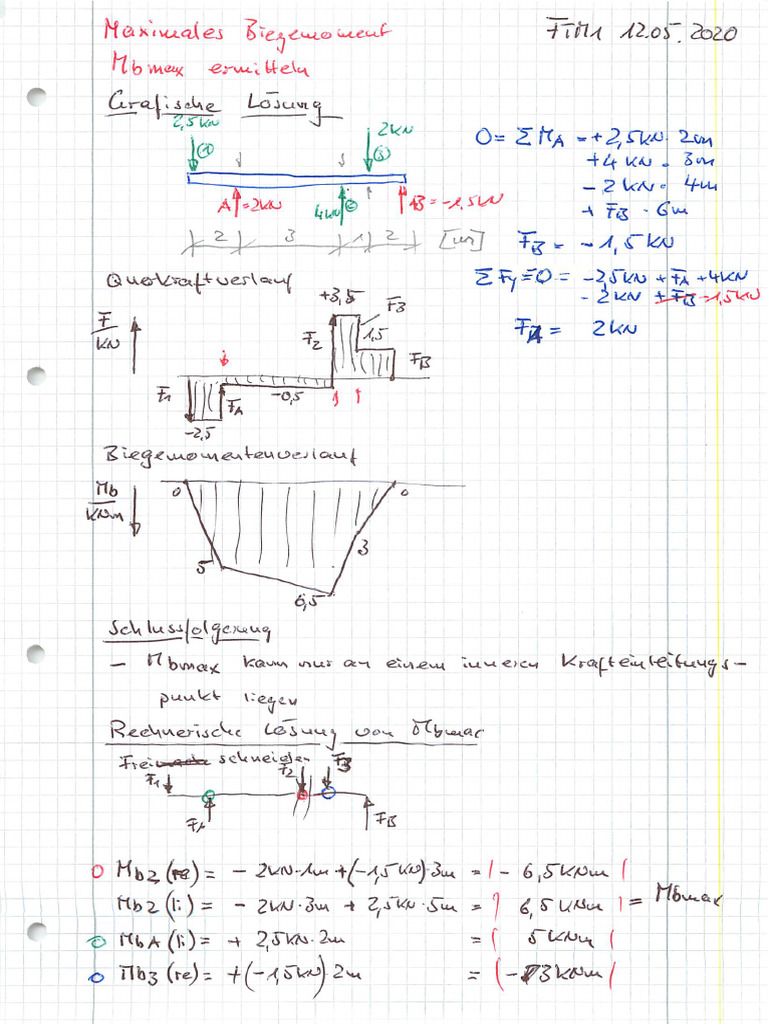 Maximales Biegemoment
FTM1 12.05.2020
Mbmax ermitteln
Grafische Lösung
2,5kN
①
2kN
③
A=2kN
4kN
②
B=-1,5kN
2 3 1 2 [m]
0 = ΣMA = +2,5kN · 2m
+4kN · 3m
- 2kN · 4m
+ FB · 6m
FB = -1,5kN
ΣFy=0 = -2,5kN + FA + 4kN
- 2kN + FB -1,5kN
FA = 2kN
Querkraftverlauf
F
kN
+3,5
F3
F2
1,5
FB
F1
FA
-0,5
-2,5
Biegemomentenverlauf
Mb
kNm
0
0
5
3
6,5
Schlussfolgerung
- Mbmax kann nur an einem inneren Krafteinleitungs-
punkt liegen
Rechnerische Lösung von Mbmax
Frei schneiden
F1
F2
F3
FA
FB
Mb2 (re) = - 2kN·1m + (-1,5kN)·3m = |- 6,5kNm|
Mb2 (li) = - 2kN·3m + 2,5kN·5m = | 6,5kNm | = Mbmax
MbA (li) = + 2,5kN·2m = | 5kNm |
Mb3 (re) = + (-1,5kN)·2m = |-3kNm|